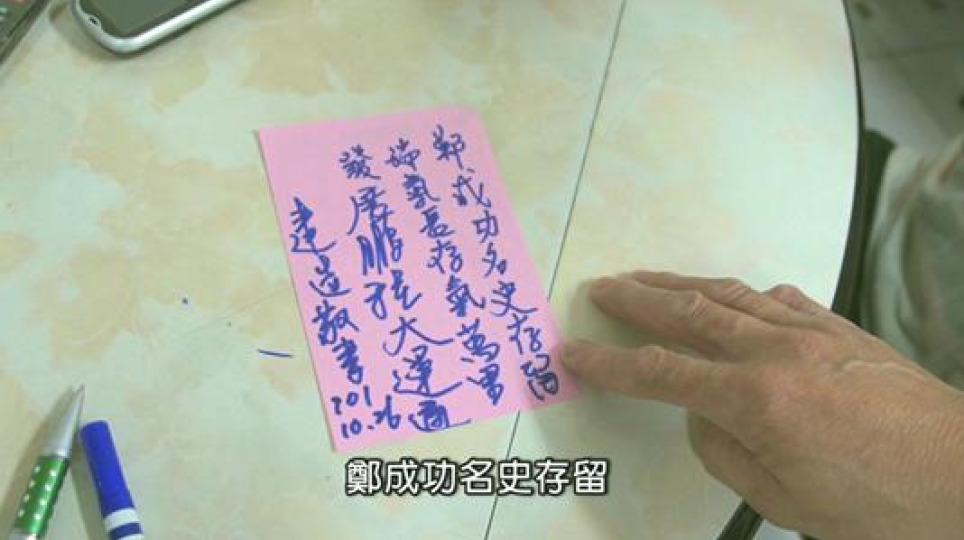 鄭成功名史存留
瑞氣長存氣萬
發展鵬程大運通
敬書
101
10.26
鄭成功名史存留